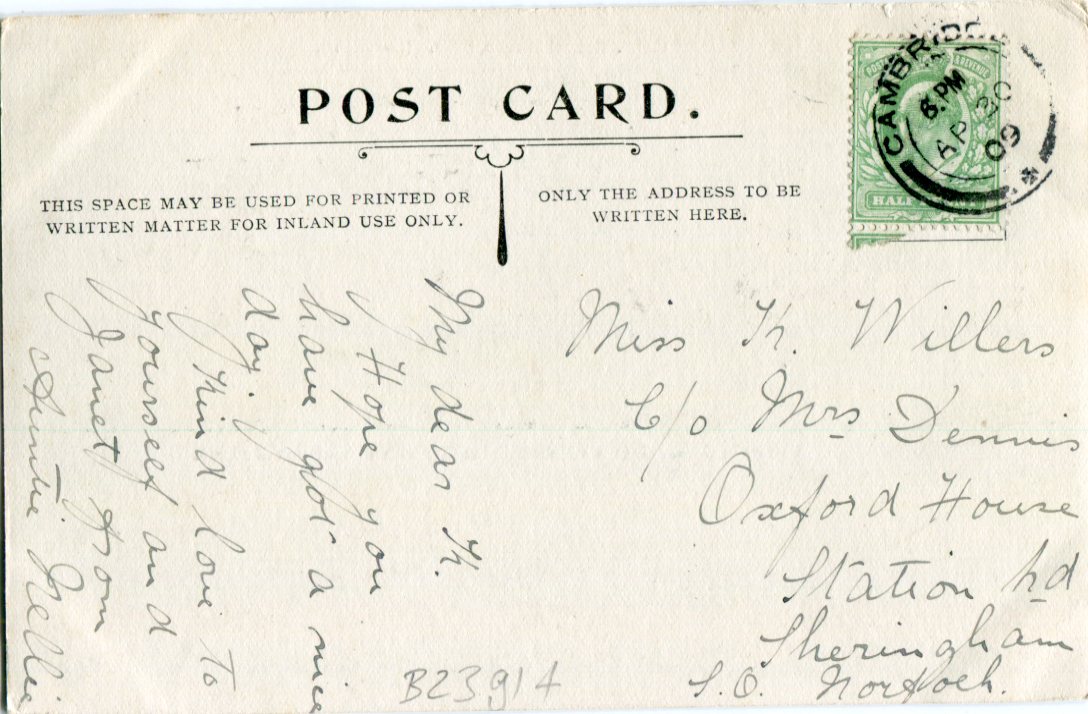 POST CARD.
THIS SPACE MAY BE USED FOR PRINTED OR
WRITTEN MATTER FOR INLAND USE ONLY.
ONLY THE ADDRESS TO BE
WRITTEN HERE.
CAMBRIDGE
6. PM
AP 30
09
POSTAGE & REVENUE
HALF
My dear K.
Hope you
have got a nice
day.
Kind love to
yourself and
Janet from
Auntie Nellie
Miss K. Willers
C/o Mrs Dennis
Oxford House
Station Rd
Sheringham
S.O. Norfolk.
B23914